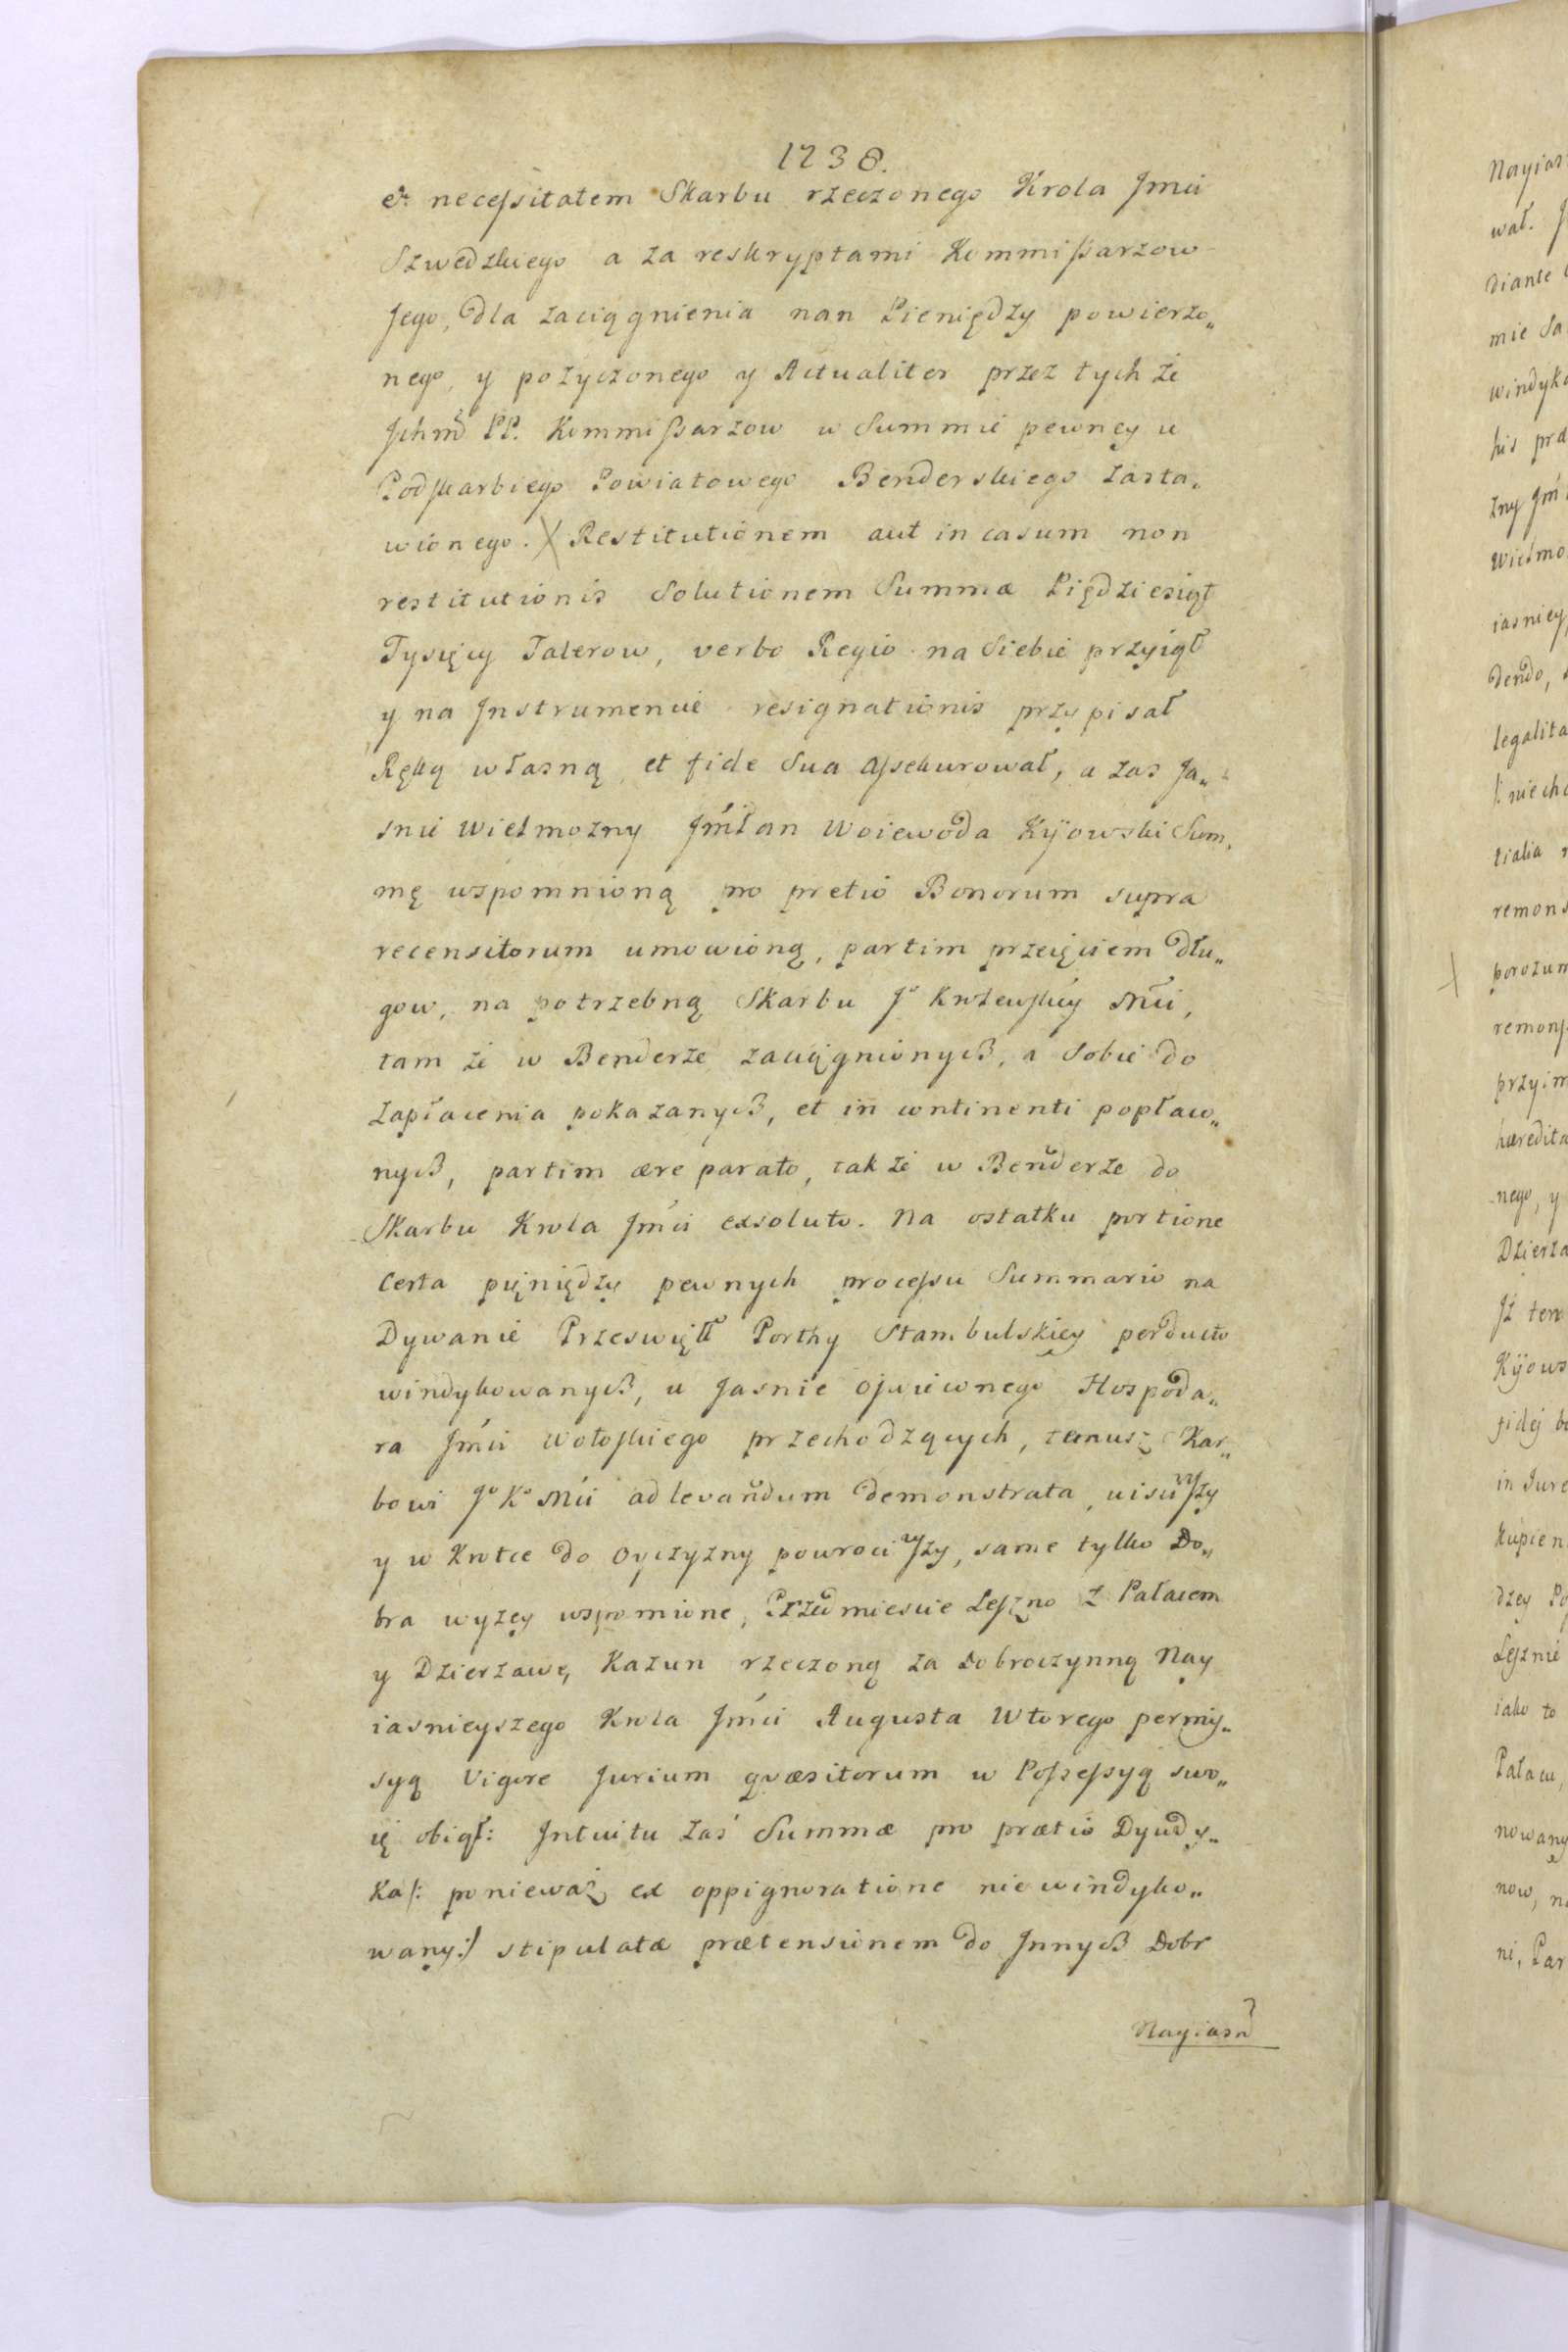 1738.
et necessitatem Skarbu rzeczonego Krola Jmci
Szwedzkiego a za reskryptami Kommissarzow
Jego, dla zaciągnienia nan Pieniędzy powierzo„
nego, y pozyczonego y Actualiter przez tych że
Jchmć PP. Kommissarzow w Summie pewney u
Podskarbiego Powiatowego Benderskiego zasta„
wionego. X Restitutionem aut in casum non
restitutionis Solutionem Summæ Piędziesiąt
Tysięcy Talerow, verbo Regio na Siebie przyiął
y na Jnstrumencie resignationis przypisał
Ręką własną et fide Sua assekurował, a zas Ja„
snie Wielmozny JmcPan Woiewoda Kijowski Sum„
mę wspomnioną pro pretio Bonorum supra
recensitorum umowioną, partim przeięciem dłu„
gow, na potrzebną Skarbu Jo Krolewskiey Mci,
tam że w Benderze zaciągnionych, a Sobie do
zapłacenia pokazanych, et in continenti popłaco„
nych, partim ære parato, tak że w Benderze do
Skarbu Krola Jmci exsoluto. Na ostatku portione
Certa pięniędzy pewnych processu Summario na
Dywanie Przeswięt Porthy Stambulskiey perducto
windykowanych, u Jasnie Oswieconego Hospoda„
ra Jmci Wołoskiego przechodzących, temusz Skar„
bowi Jo Ko Mci ad levandum demonstrata, uisciwszy
y w Krotce do Oyczyzny powrociwszy, same tylko Do„
bra wyzey wspomione, Przedmiescie Leszno z Pałacem
y Dzierzawę, Kazun rzeczoną za Dobroczynną Nay
iasnieyszego Krola Jmci Augusta Wtorego permis„
syą Vigore Jurium quæsitorum w Possessyą swo„
ię obiął: Jntuitu zaś Summæ pro prætio Dyudy„
ka /: poniewaz ex oppignoratione nie windyko„
wany:/ stipulatæ prætensionem do Jnnych Dobr
Nayiasn
Nayias
wał.
diante
mie Sa
windyk
his præ
zny Jm
Wielmo
iasniey
dendo,
legalita
/: niech
tialia
remons
porozum
remons
przyim
hæredita
nego, y
Dzierza
Jż ten
Kijows
fidej
in Jure
kupien
dzey Po
Lesznie
iako to
Pałacu,
nowany
now, n
ni, Par